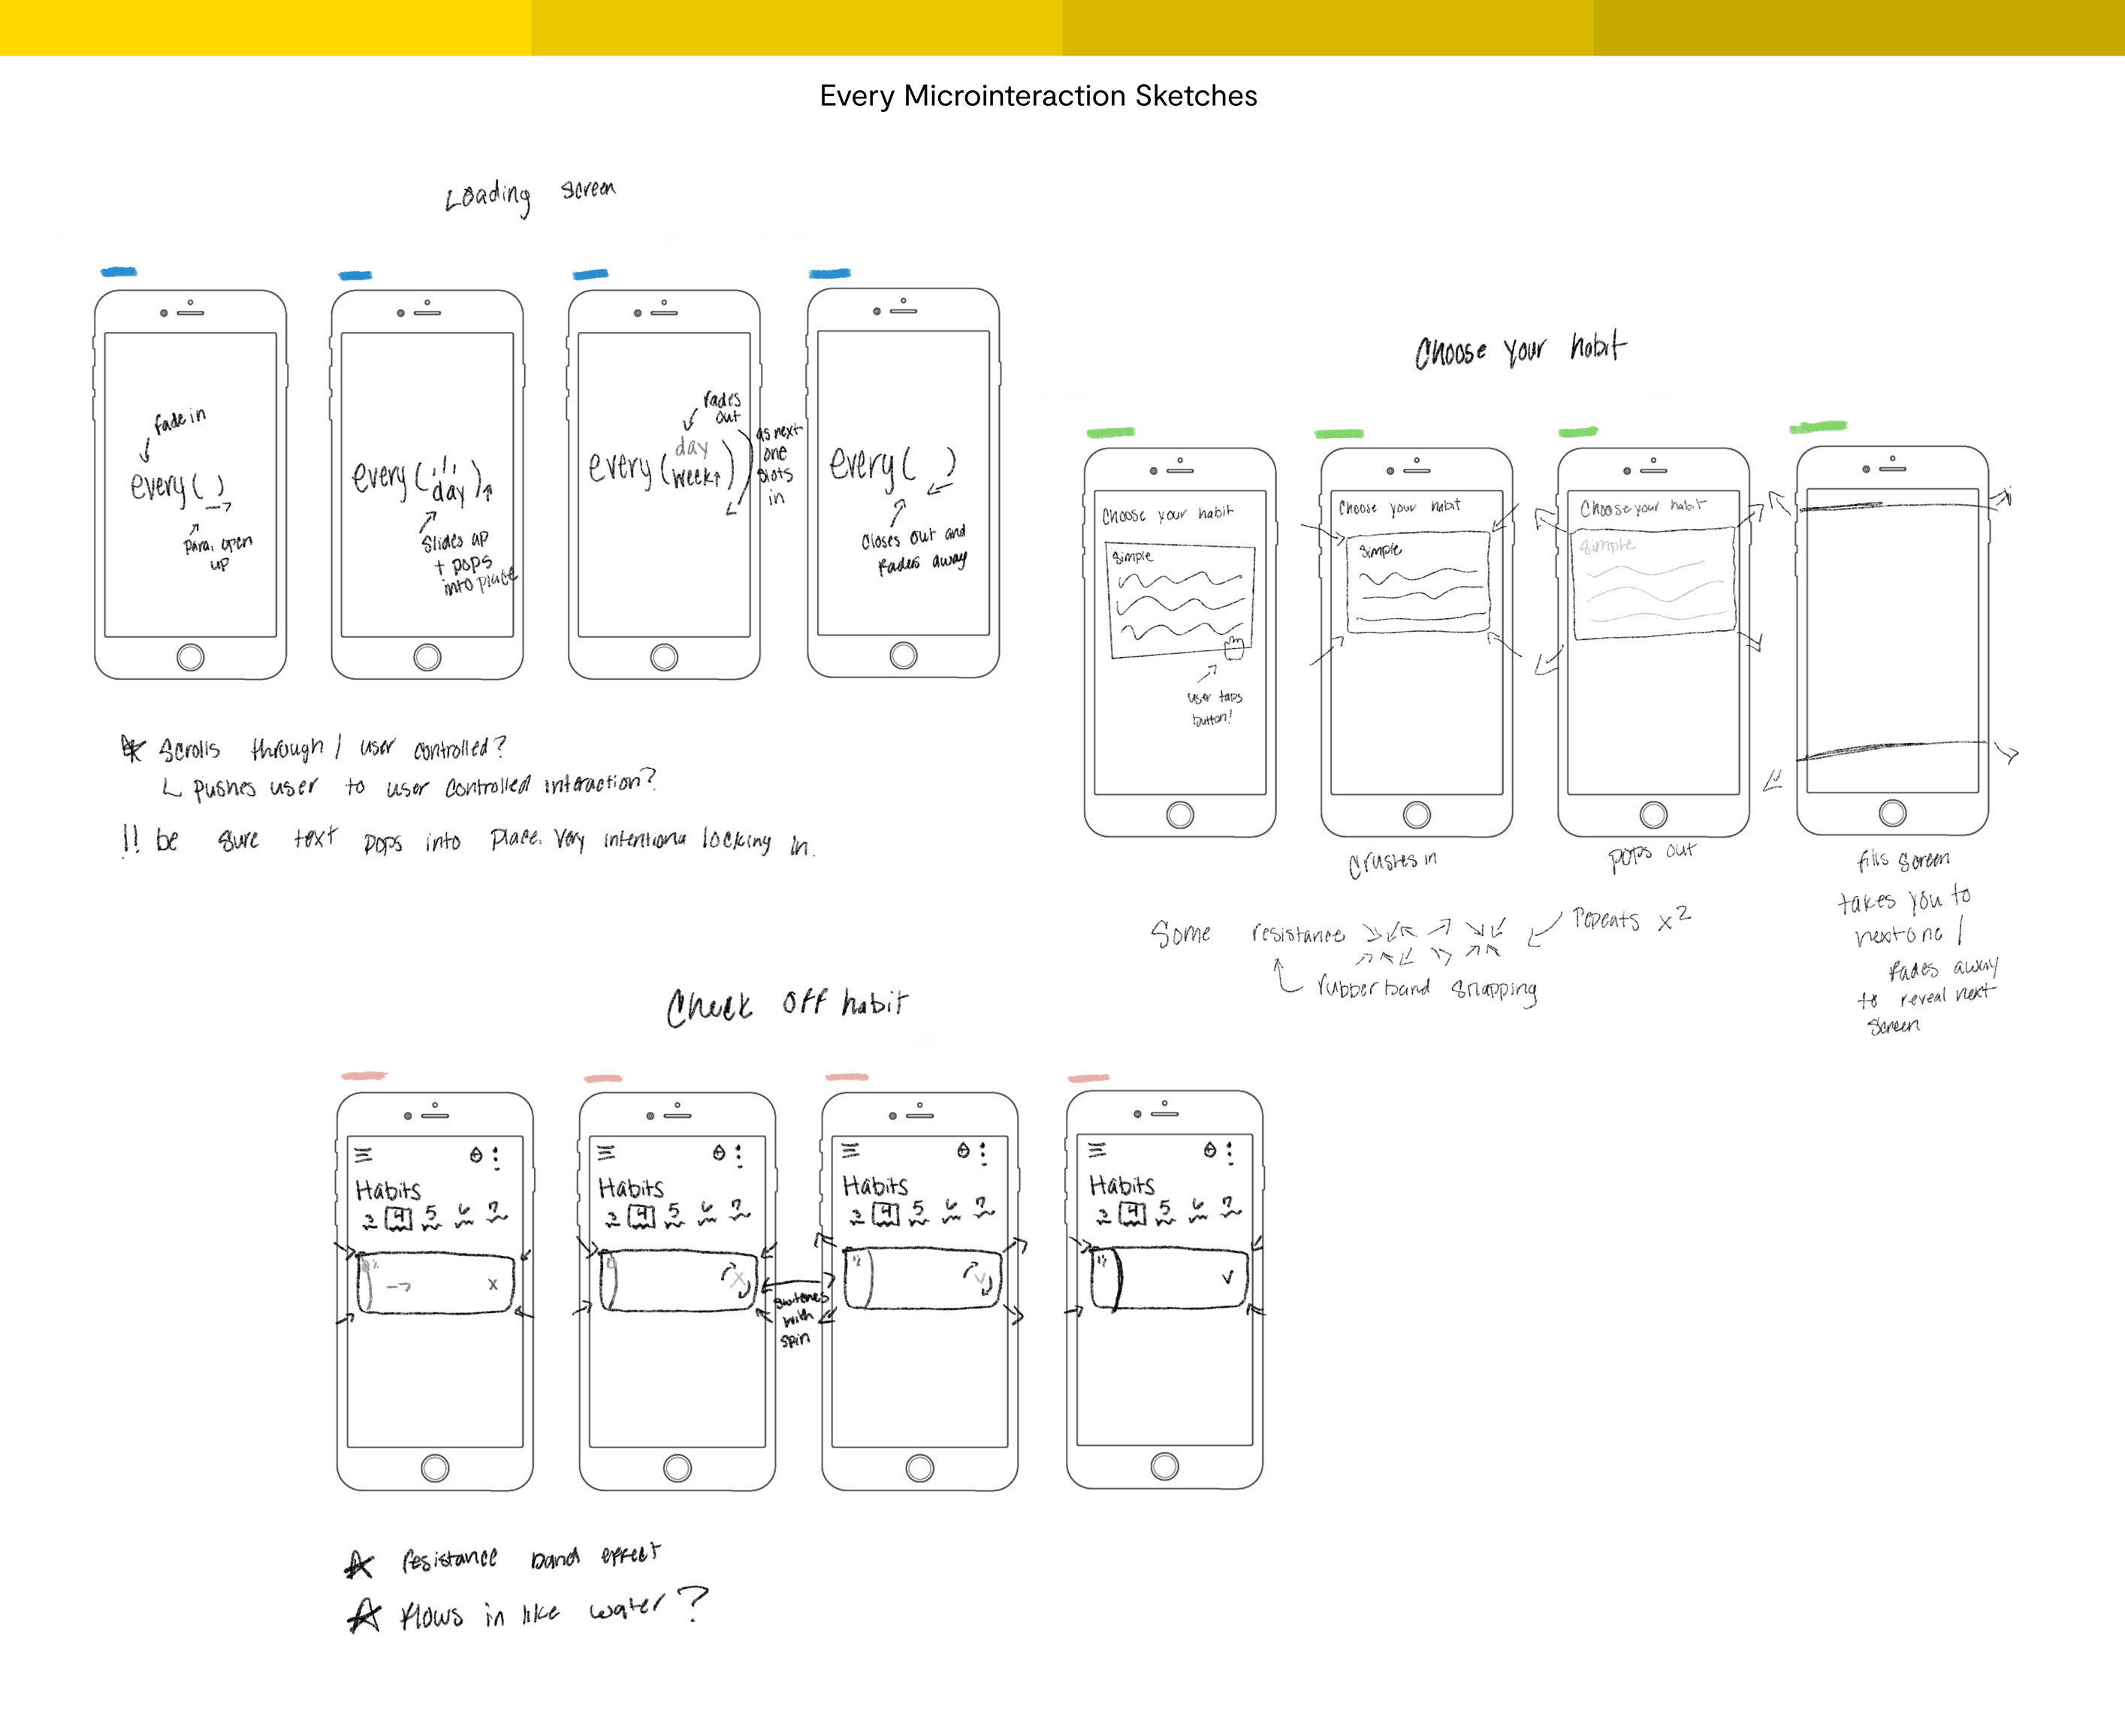 Every Microinteraction Sketches
Loading screen
fade in
every ( )
para. open
up
every (
day )
Slides up
+ pops
into place
fades
out
day
every ( week )
as next
one
slots
in
every ( )
Closes out and
fades away
Scrolls through / user controlled?
pushes user to user controlled interaction?
!! be sure text pops into place. Very intentiona locking in.
Choose your habit
Choose your habit
Simple
user taps
button!
Choose your habit
Simple
Crushes in
Choose your habit
Simple
pops out
fills screen
takes you to
next one /
fades away
to reveal next
screen
Some resistance
repeats x2
rubber band snapping
Check off habit
Habits
3 4 5 6 7
x
Habits
3 4 5 6 7
x
switches
with
spin
Habits
3 4 5 6 7
Habits
3 4 5 6 7
resistance band effect
flows in like water?